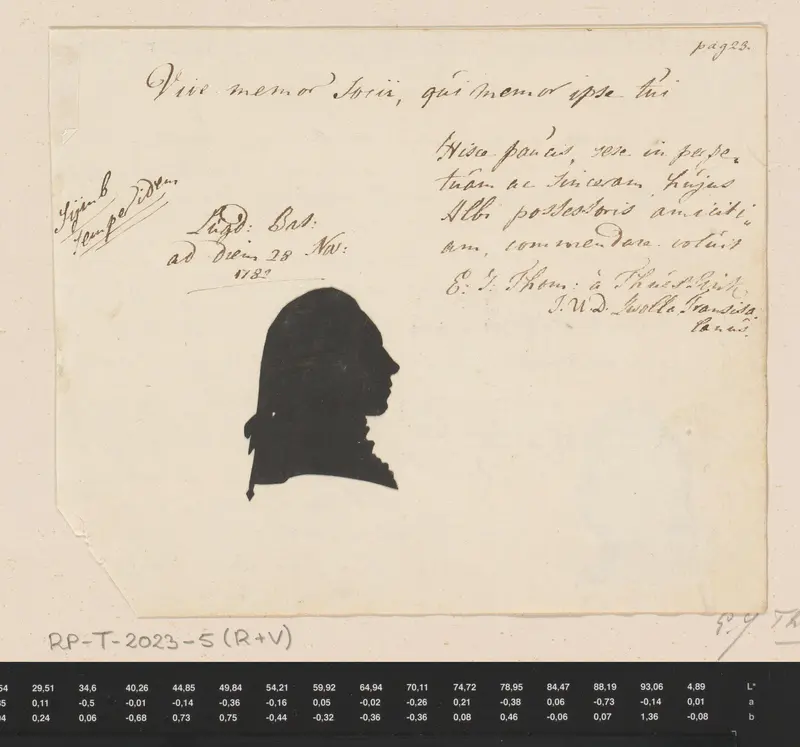 pag 23.
Vive memor Socii, qui memor ipse tui
Hisce paucis, sese in perpe„
tuam ac sinceram hujus
Albi possessoris amiciti„
am, commendare voluit
E: J: Thom: à Thuessink
J. U. D. Zwolla Transisa„
lanus.
Symb
Semper idem
Lugd: Bat:
ad diem 28 Nov:
1782
RP-T-2023-5 (R+V)
G. J. Th
54 29,51 34,6 40,26 44,85 49,84 54,21 59,92 64,94 70,11 74,72 78,95 84,47 88,19 93,06 4,89 L*
35 0,11 -0,5 -0,01 -0,14 -0,36 -0,16 0,05 -0,02 -0,26 0,21 -0,38 0,06 -0,73 -0,14 0,01 a
04 0,24 0,06 -0,68 0,73 0,75 -0,44 -0,32 -0,36 -0,36 0,08 0,46 -0,06 0,07 1,36 -0,08 b